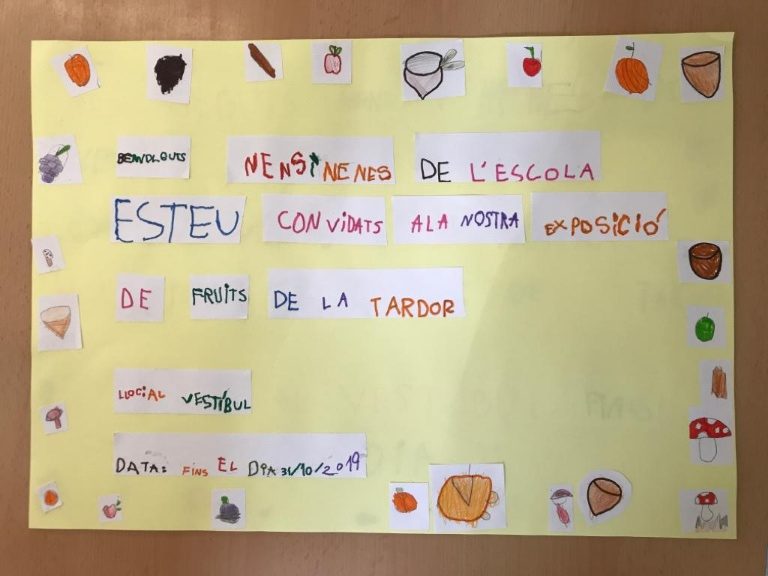 BENVOLGUTS NENS i NENES DE L'ESCOLA
ESTEU CONViDATS A LA NOSTRA EXPOSiCIÓ
DE FRUiTS DE LA TARDOR
LLOC: AL VESTÍBUL
DATA: FINS EL DIA 31/10/2019